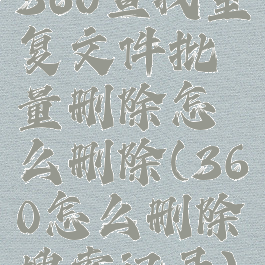 360查找重
复文件批
量删除怎
么删除(36
0怎么删除
搜索记录)